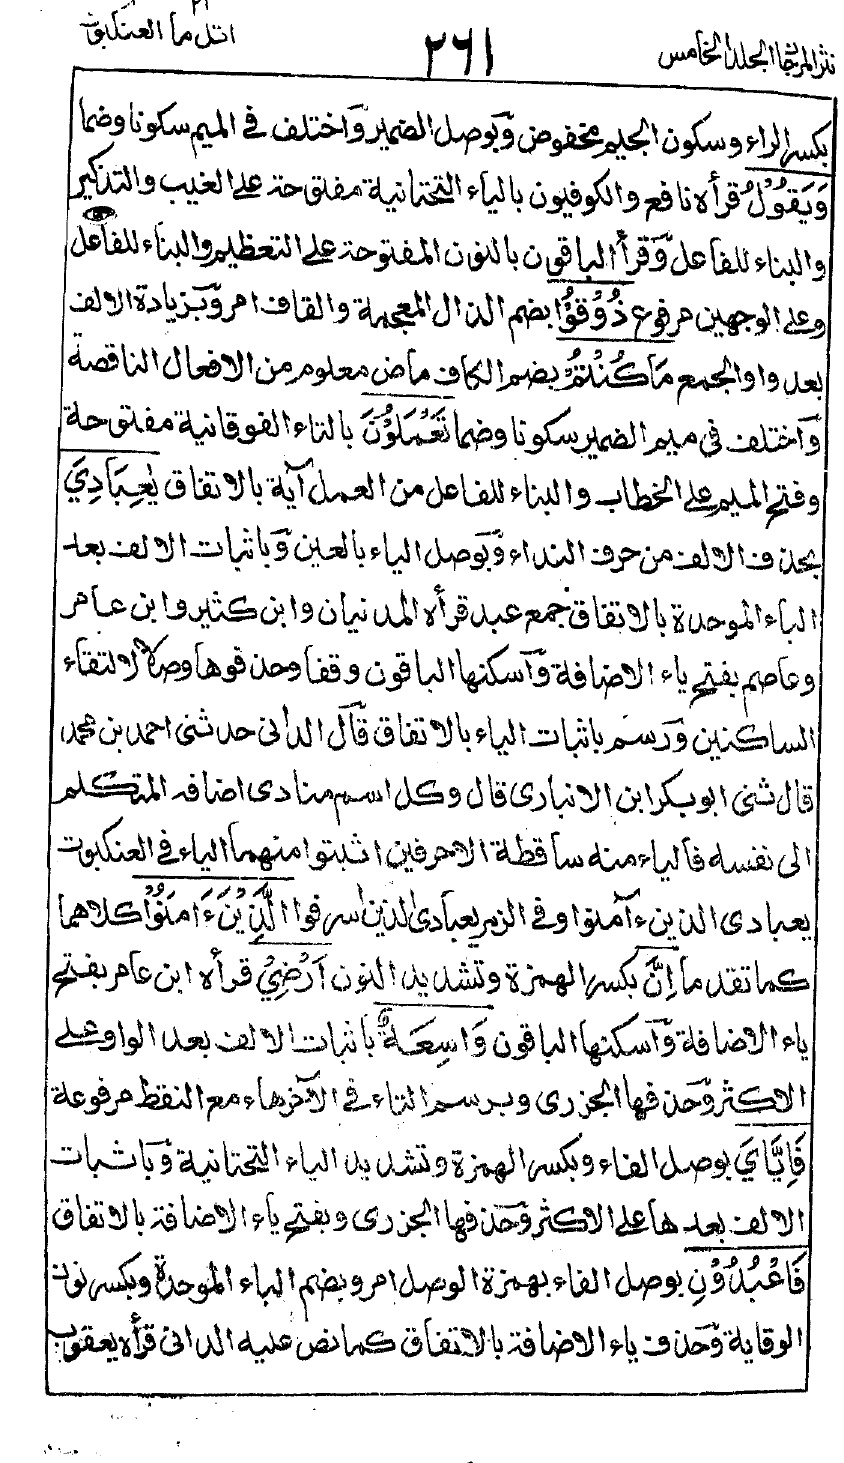 نثر المرجان الجلد الخامس
٢٦١
اتل ما ٢١ العنكبوت
بكسر الراء وسكون الجيم مخفوض وبوصل الضمير واختلف في الميم سكونا وضما
وَيَقُوۡلُ قرأه نافع والكوفيون بالياء التحتانية مفتوحة على الغيب والتذكير
والبناء للفاعل وقرأ الباقون بالنون المفتوحة على التعظيم والبناء للفاعل
وعلى الوجهين مرفوع ذُوۡقُوۡا بضم الذال المعجمة والقاف امر وبزيادة الالف
بعد واو الجمع مَا كُنۡتُمۡ بضم الكاف ماض معلوم من الافعال الناقصة
واختلف في ميم الضمير سكونا وضما تَعۡمَلُوۡنَ بالتاء الفوقانية مفتوحة
وفتح الميم على الخطاب والبناء للفاعل من العمل آية بالاتفاق يٰعِبَادِيَ
بحذف الالف من حرف النداء وبوصل الياء بالعين وباثبات الالف بعد
الباء الموحدة بالاتفاق جمع عبد قرأه المدنيان وابن كثير وابن عامر
وعاصم بفتح ياء الاضافة وآسكنها الباقون وقفا وحذفوها وصلا لالتقاء
الساكنين ورسم باثبات الياء بالاتفاق قال الدانى حدثنى احمد بن محمد
قال ثنى ابو بكر ابن الانبارى قال وكل اسم منادى اضافه المتكلم
الى نفسه فالياء منه ساقطة الا حرفين اثبتوا منهما الياء في العنكبوت
يعبادى الذين ءامنوا وفى الزمر يعبادى الذين اسرفوا الَّذِيۡنَ ءَامَنُوۡا كلاهما
كما تقدما اِنَّ بكسر الهمزة وتشديد النون اَرۡضِيۡ قرأه ابن عامر بفتح
ياء الاضافة وآسكنها الباقون وَاسِعَةٌ باثبات الالف بعد الواو على
الاكثر وحذفها الجزرى وبرسم التاء في الآخر هاء مع النقط مرفوعة
فَاِيَّايَ بوصل الفاء وبكسر الهمزة وتشديد الياء التحتانية وباثبات
الالف بعدها على الاكثر وحذفها الجزرى وبفتح ياء الاضافة بالاتفاق
فَاعۡبُدُوۡنِ بوصل الفاء بهمزة الوصل امر وبضم الباء الموحدة وبكسر نون
الوقاية وحذف ياء الاضافة بالاتفاق كما نص عليه الدانى قرأه يعقوب